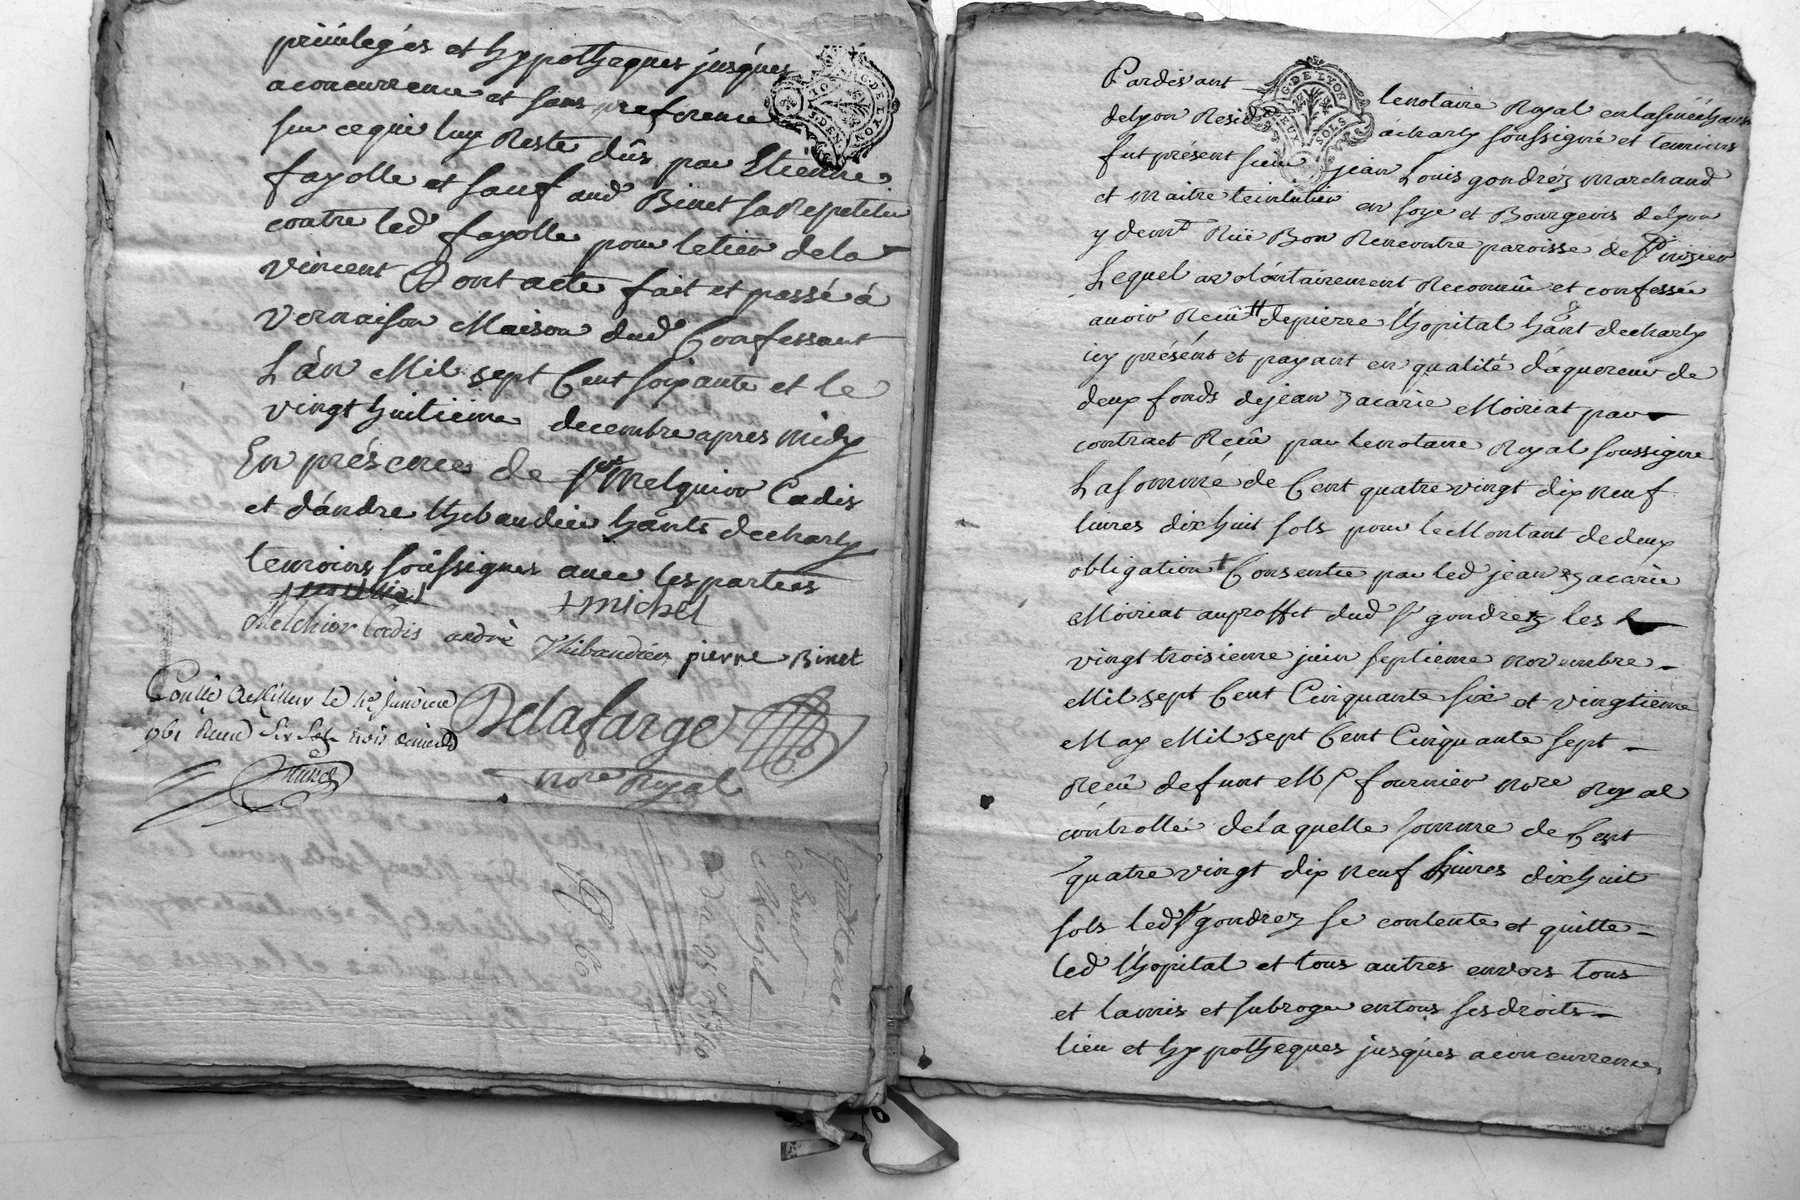 priuileges et hypotheques jusques
a concurrence et sans preference
sur ce qui luy Reste dûs par Etienne
fayolle et sauf aud Binet sa Repetition
contre led fayolle pour le tier de la
vincent Dont acte fait et passé á
vernaison Maison dud Confessant
L'án Mil sept Cent soixante et le
vingt huitieme decembre apres midy
En présence de Sr Melquior Cadis
et d'andre thibaudier hants de charly
temoins soussignés auec les parties
+michel
Melchior Cadis andré Thibaudier pierre Binet
Delafarge
nore Royal
GEN. DE LYON
Pardevant le notaire Royal en la sénéchaussée
de lyon Resid á charly soussigné et temoins
G. DE LYON
DEUX SOLS
fut présent sieur jean Louis gondréz marchand
et maitre teinturier en soye et Bourgeois de lyon
y demt Rüe Bon Rencontre paroisse de St nizier
Lequel a volontairement Reconnû et confessée
auoir Recûtt de pierre l'hopital hant de charly
icy présént et payant en qualité d'áquereur de
deux fonds de jean zacarie Moiriat par
contract Recû par le notaire Royal soussigne
La somme de Cent quatre vingt dix neuf
liures dix huit sols pour le Montant de deux
obligation+ Consentie par led jean zacarie
Moiriat au proffit dud Sr gondrez les
vingt troisieme juin septieme novembre
Mil sept Cent Cinquante six et vingtieme
May Mil sept Cent Cinquante sept
Recû defunt Me fournier nore Royal
controllé de laquelle somme de Cent
quatre vingt dix neuf liures dix huit
sols led Sr gondrez se contente et quitte
led l'hopital et tous autres envers tous
et la mis et subroge en tous ses droits
lieu et hypotheques jusqués a concurrence